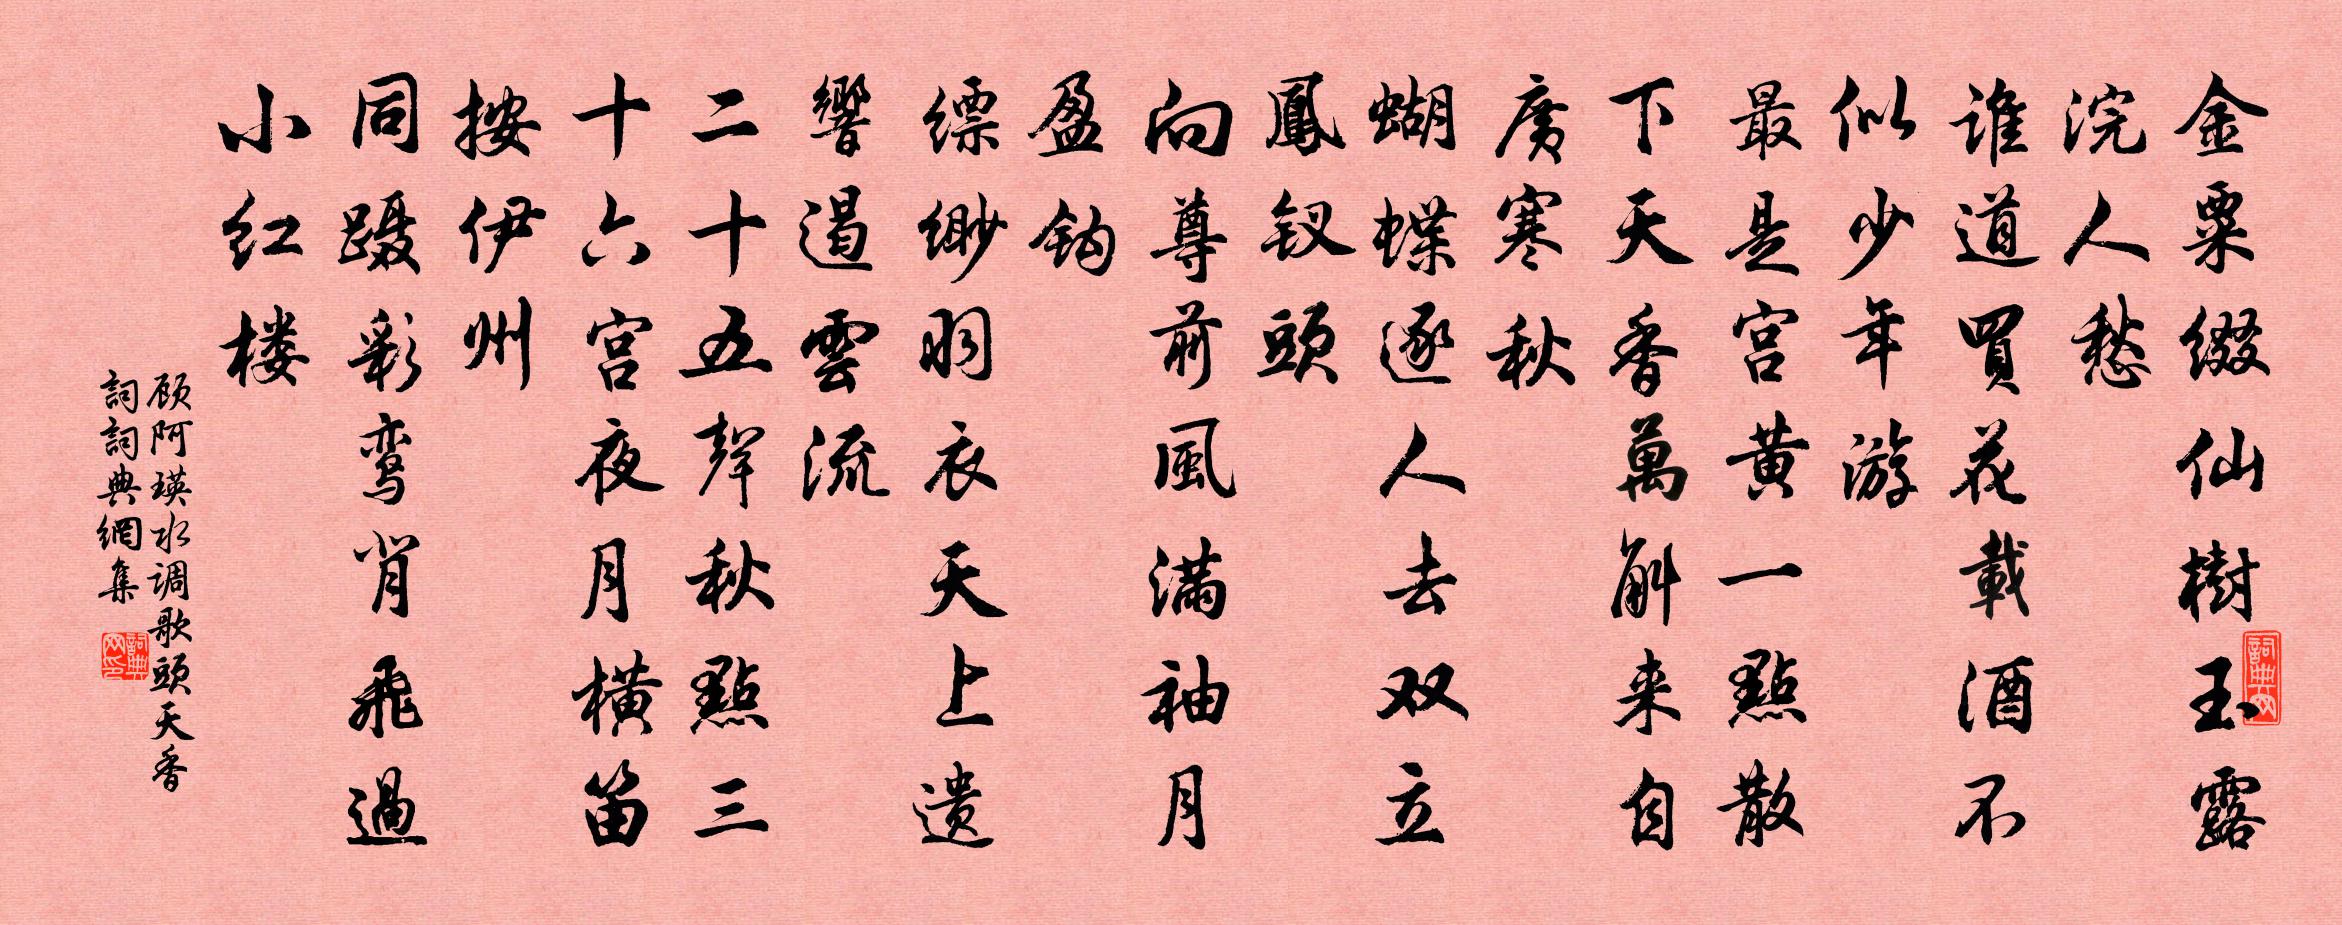 金粟缀仙樹玉露
浣人愁
谁道買花載酒不
似少年游
最是宫黄一點散
下天香萬斛来自
廣寒秋
蝴蝶逐人去双立
鳳钗頭
向尊前風满袖月
盈钩
缥缈羽衣天上遗
響遏雲流
二十五聲秋點三
十六宫夜月横笛
按伊州
同蹑彩鸾背飛過
小红楼
顾阿瑛水调歌頭天香
詞詞典網集
詞典网
詞典网印